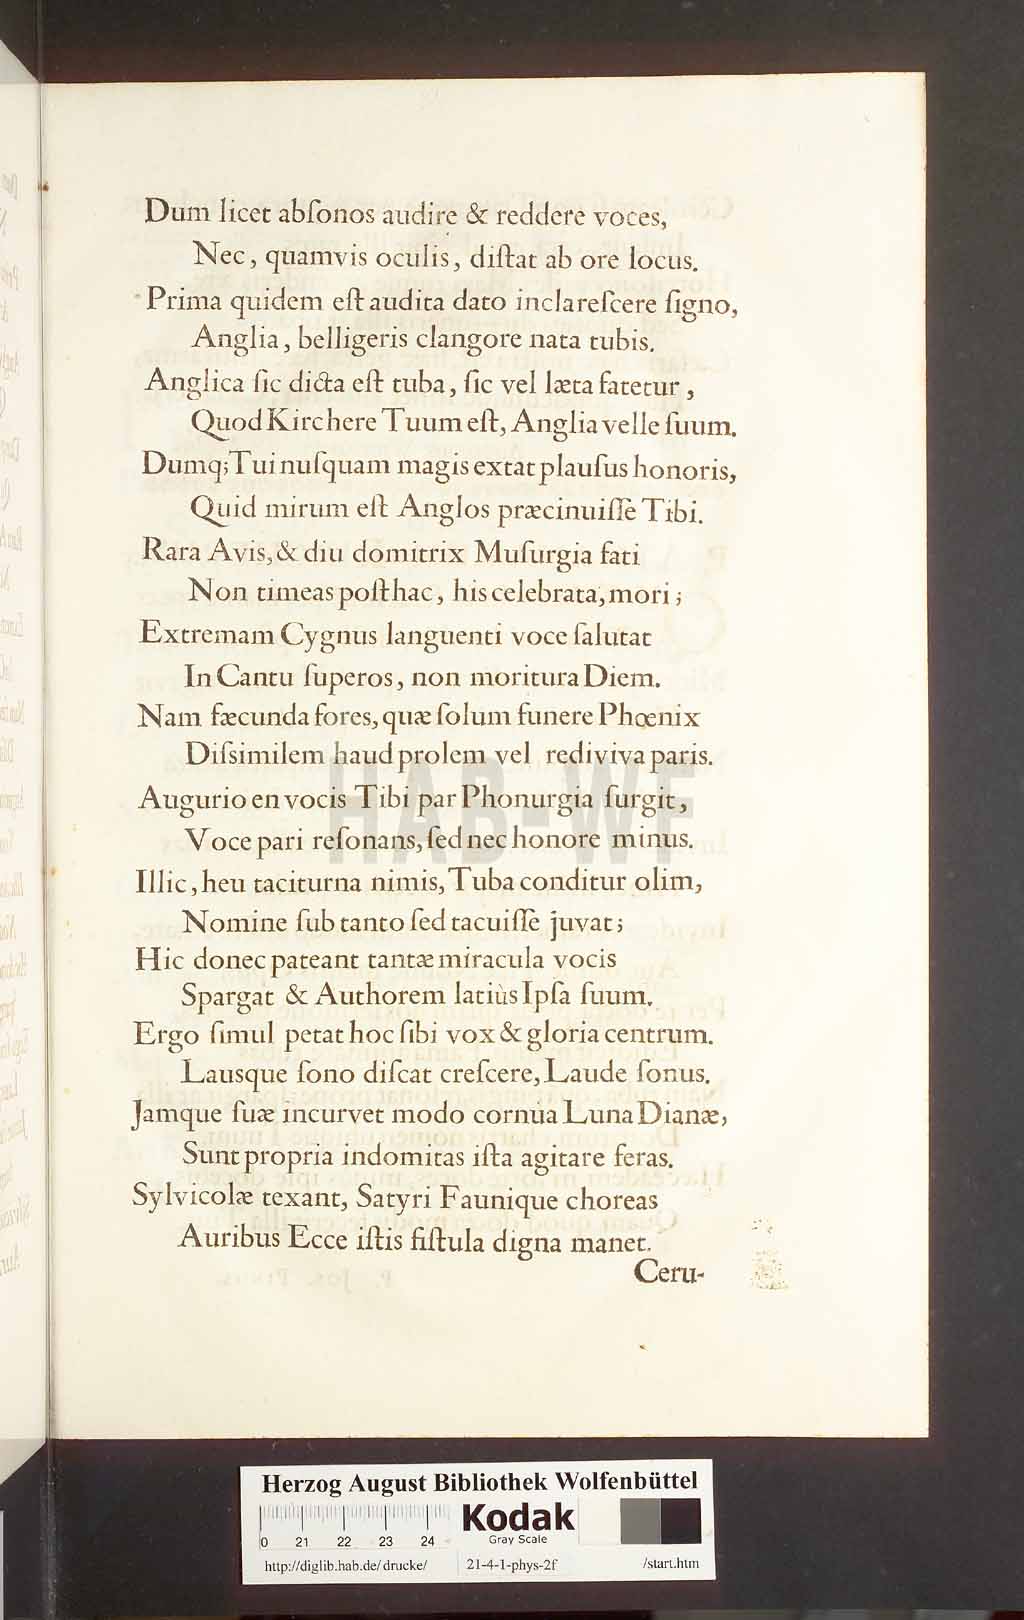 Dum licet abſonos audire & reddere voces,
Nec, quamvis oculis, diſtat ab ore locus.
Prima quidem eſt audita dato inclareſcere ſigno,
Anglia, belligeris clangore nata tubis.
Anglica ſic dicta eſt tuba, ſic vel læta fatetur,
Quod Kirchere Tuum eſt, Anglia velle ſuum.
Dumq; Tui nuſquam magis extat plauſus honoris,
Quid mirum eſt Anglos præcinuiſſe Tibi.
Rara Avis, & diu domitrix Muſurgia fati
Non timeas poſthac, his celebrata, mori;
Extremam Cygnus languenti voce ſalutat
In Cantu ſuperos, non moritura Diem.
Nam fæcunda fores, quæ ſolum funere Phœnix
Diſsimilem haud prolem vel rediviva paris.
Augurio en vocis Tibi par Phonurgia ſurgit,
Voce pari reſonans, ſed nec honore minus.
Illic, heu taciturna nimis, Tuba conditur olim,
Nomine ſub tanto ſed tacuiſſe juvat;
Hic donec pateant tantæ miracula vocis
Spargat & Authorem latiùs Ipſa ſuum.
Ergo ſimul petat hoc ſibi vox & gloria centrum.
Lausque ſono diſcat creſcere, Laude ſonus.
Jamque ſuæ incurvet modo cornua Luna Dianæ,
Sunt propria indomitas iſta agitare feras.
Sylvicolæ texant, Satyri Faunique choreas
Auribus Ecce iſtis fiſtula digna manet.
Ceru-
HAB-WF
Herzog August Bibliothek Wolfenbüttel
Kodak
Gray Scale
0 21 22 23 24
http://diglib.hab.de/drucke/ 21-4-1-phys-2f /start.htm